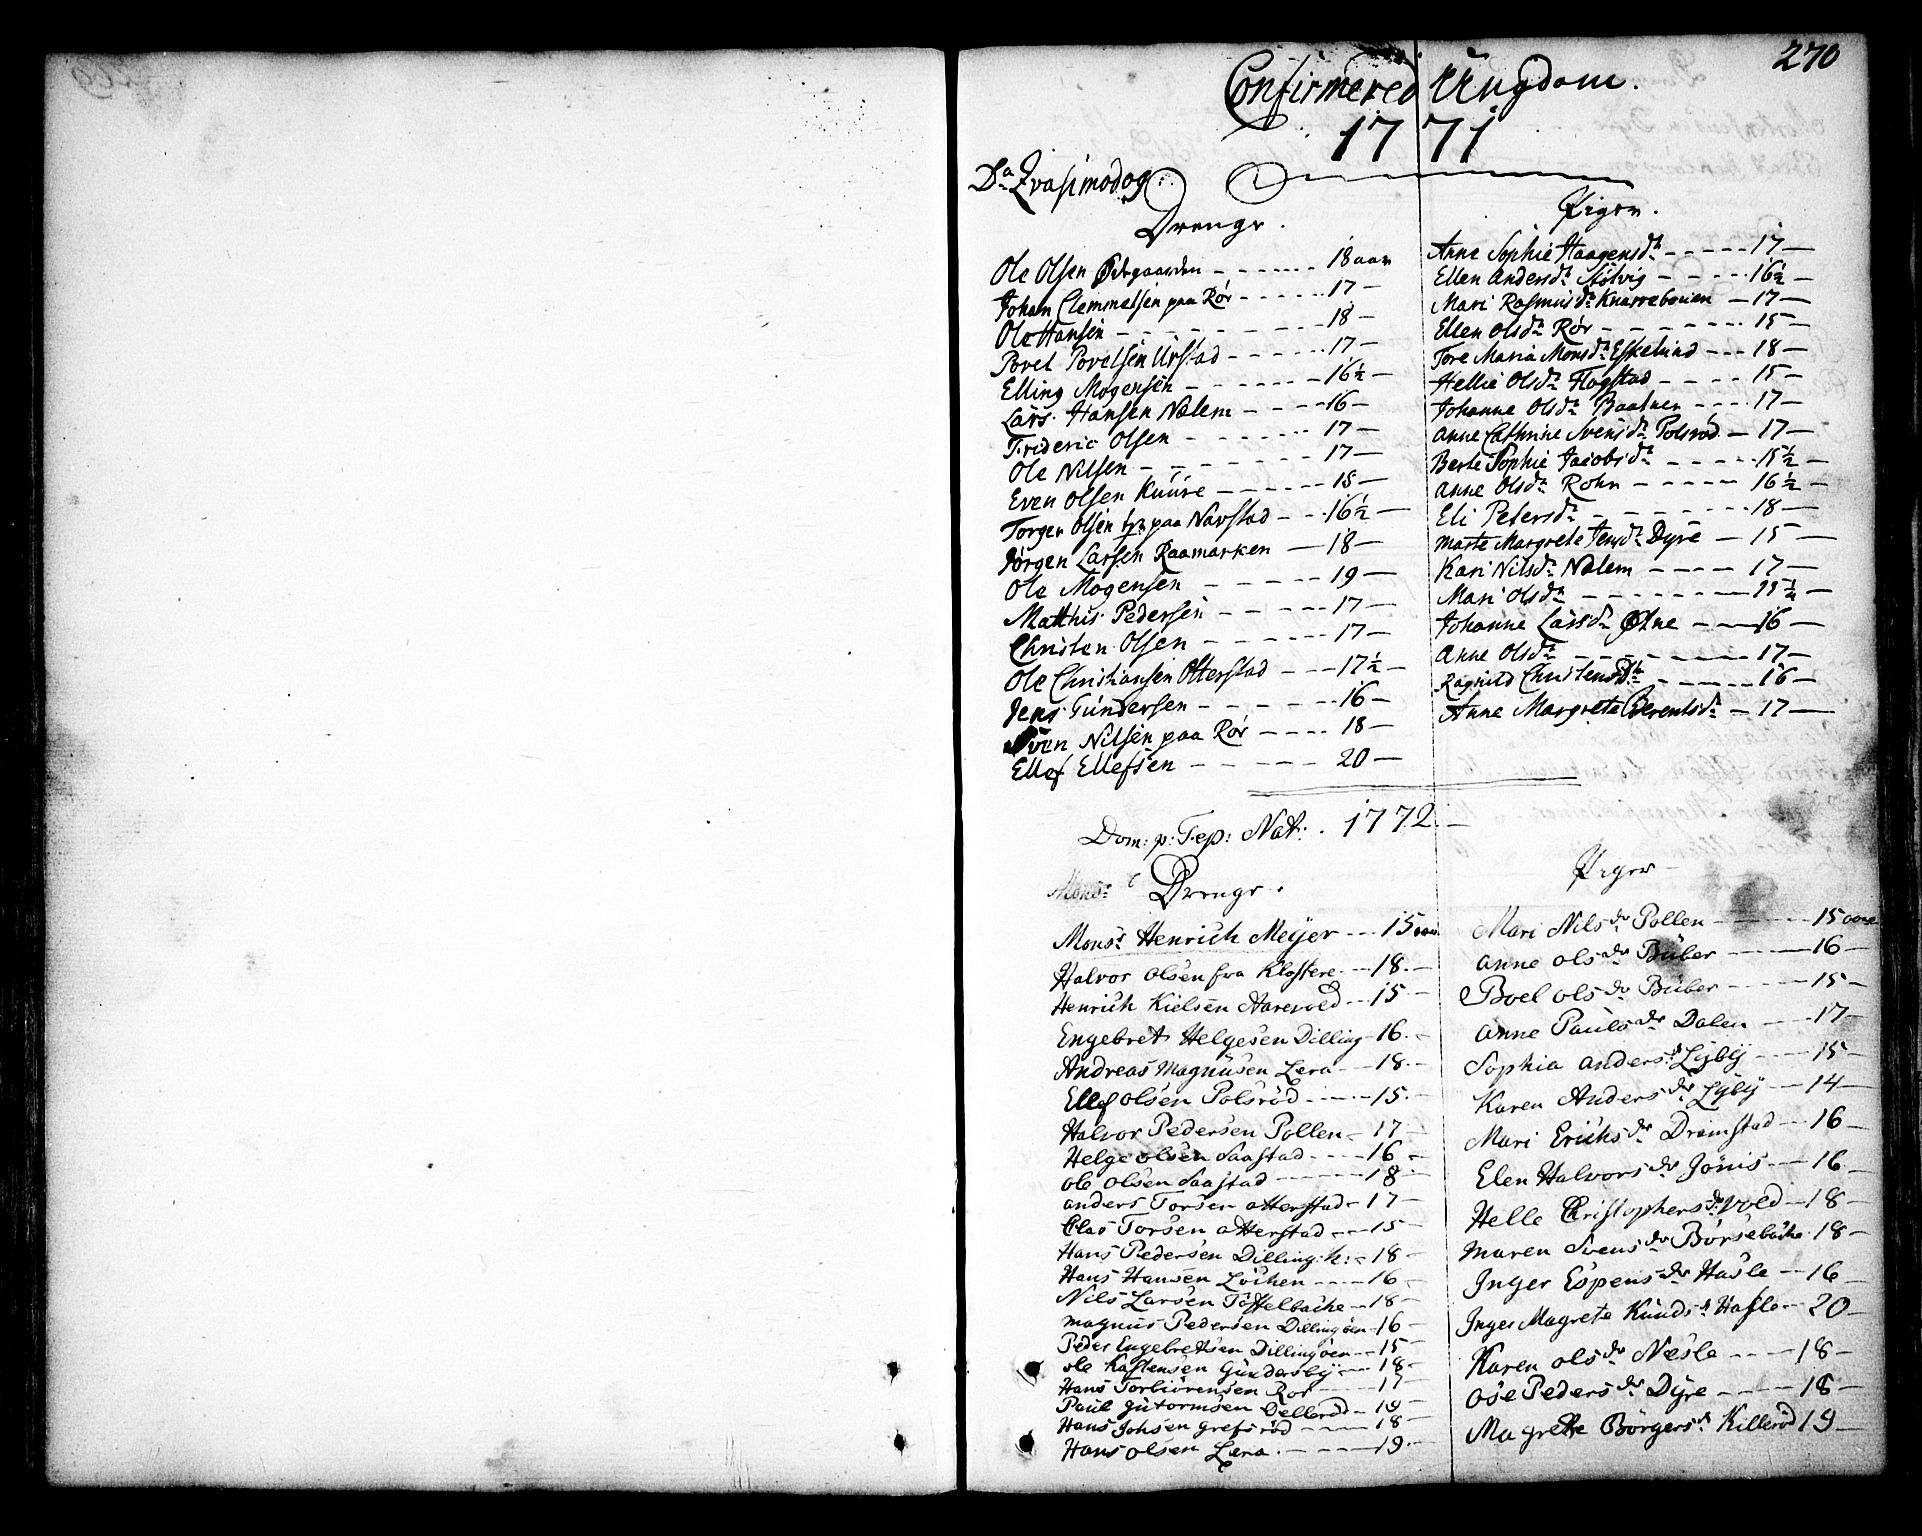 270
Confirmered Ungdom.
1771
Dca Qvasimodog:
Drenge.
Ole Olsen Ødegaarden - - - - 18 aar
Johan Clemmetsen paa Rør - - - - 17 -
Ole Hansen - - - - 18 -
Povel Povelsen Urstad - - - - 17 -
Elling Mogensen - - - - 16½ -
Lars Hansen Nalem - - - - 16 -
Frideric Olsen - - - - 17 -
Ole Nilsen - - - - 17 -
Even Olsen Kuure - - - - 18 -
Torger Olsen paa Navstad - - - 16½ -
Jørgen Larsen Raamarken - 18 -
Ole Mogensen - - - - 19 -
Matthis Pedersen - - - - 17 -
Christen Olsen - - - - 17 -
Ole Christiansen Otterstad - - - 17½ -
Jens Gundersen - - - - 16 -
Sven Nilsen paa Rør - - - - 18 -
Ellef Ellefsen - - - - 20 -
Piger.
Anne Sophie Haagensdr - - - - 17 -
Ellen Andersdr Sølvig - - - - 16½ -
Mari Rasmusdr Knarrebouen - 17 -
Ellen Olsdr Rør - - - - 15 -
Tore Maria Monsdr Eskelund - - - 18 -
Hellie Olsdr Flagstad - - - - 15 -
Johanne Olsdr Baatner - - - - 17 -
Anne Cathrine Svensdr Polsrød - 17 -
Berte Sophie Jacobsdr - - - - 15½ -
Anne Olsdr Rohn - - - - 16½ -
Eli Petersdr - - - - 18 -
Marte Margrete Jensdr Dyre - 15 -
Kari Nilsdr Nalem - - - - 17 -
Mari Olsdr - - - -
Johanne Larsdr Østne - - 16 -
Anne Olsdr - - - - 17 -
Ragnild Christensdr - - - - 16 -
Anne Margrete Berentsdr - 17 -
Dom: p: F. ep: Nat: . 1772. -
Mons:
Drenge.
Monsr Henrich Meyer - - - 15 aar
Halvor Olsen fra Klostere - - - 18. -
Henrich Kielsen Aarevold - - - 15 -
Engebret Helgesen Dilling - 16. -
Andreas Magnusen Lera - - 18. -
Ellef Olsen Polsrød - - - - 15. -
Halvor Pedersen Pollen - 17 -
Helge Olsen Saastad - - - 16 -
Ole Olsen Saastad - - - - 18 -
Anders Torsen Otterstad - 17 -
Clas Torsen Otterstad - - - 15 -
Hans Pedersen Dilling. h: - 18 -
Hans Hansen Løchen - - - - 16 -
Nils Larsen Tøffelbache - - 18 -
Magnus Pedersen Dillingøen - 16 -
Peder Engebretsen Dillingøen - - 15 -
Ole Kastensen Gundersby - - 18 -
Hans Torbiørensen Rør - - - 17 -
Paul Gutormsen Dellerød - 19 -
Hans Johsen Grefsrød - - - 18 -
Hans Olsen Lera. - - - - 19. -
Piger -
Mari Nilsdr Pollen - - - - 15 aar
Anne Olsdr Buber - - - - 16 -
Boel Olsdr Buber - - - - 15 -
Anne Paulsdr Dalen - - - 17 -
Sophia Andersdr Lyby - - - 15 -
Karen Andersdr Lyby - - 14 -
Mari Erichsdr Dramstad - - 16 -
Elen Halvorsdr Jonis - - - 16 -
Helle Christophersdr Vold - 18 -
Maren Svensdr Børsebache - 18 -
Inger Espensdr Hasle - - 16 -
Inger Magrete Knudsdr Hasle - - 20 -
Karen Olsdr Nesle - - - - 18 -
Ose Pedersdr Dyre - - - - 18 -
Magrete Børgersdr Killerød 19 -